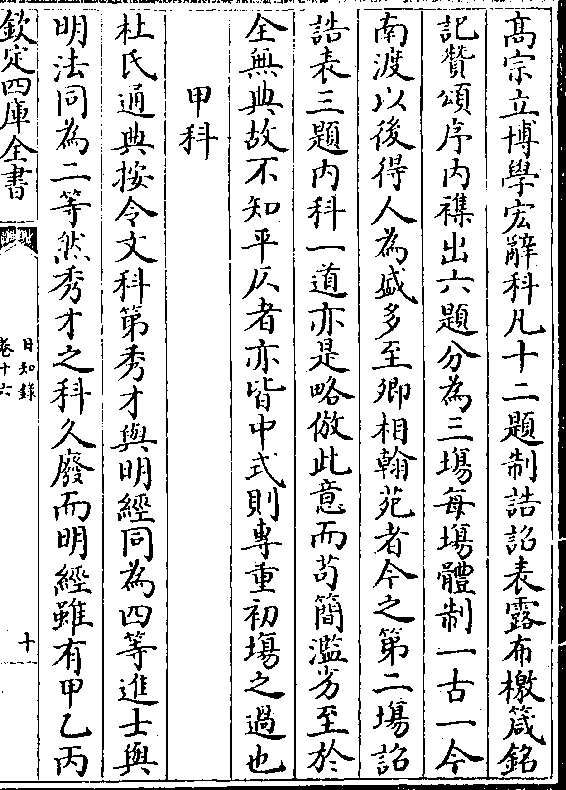 髙宗立博學宏辭科凡十二題制誥詔表露布檄箴銘
記贊頌序内襍出六題分為三塲每塲體制一古一今
南渡以後得人為盛多至卿相翰苑者今之第二塲詔
誥表三題内科一道亦是略倣此意而苟簡濫劣至於
全無典故不知平仄者亦皆中式則專重初塲之過也
甲科
杜氏通典按令文科第秀才與明經同為四等進士與
明法同為二等然秀才之科久廢而明經雖有甲乙丙
欽定四庫全書
日知錄
卷十六
十